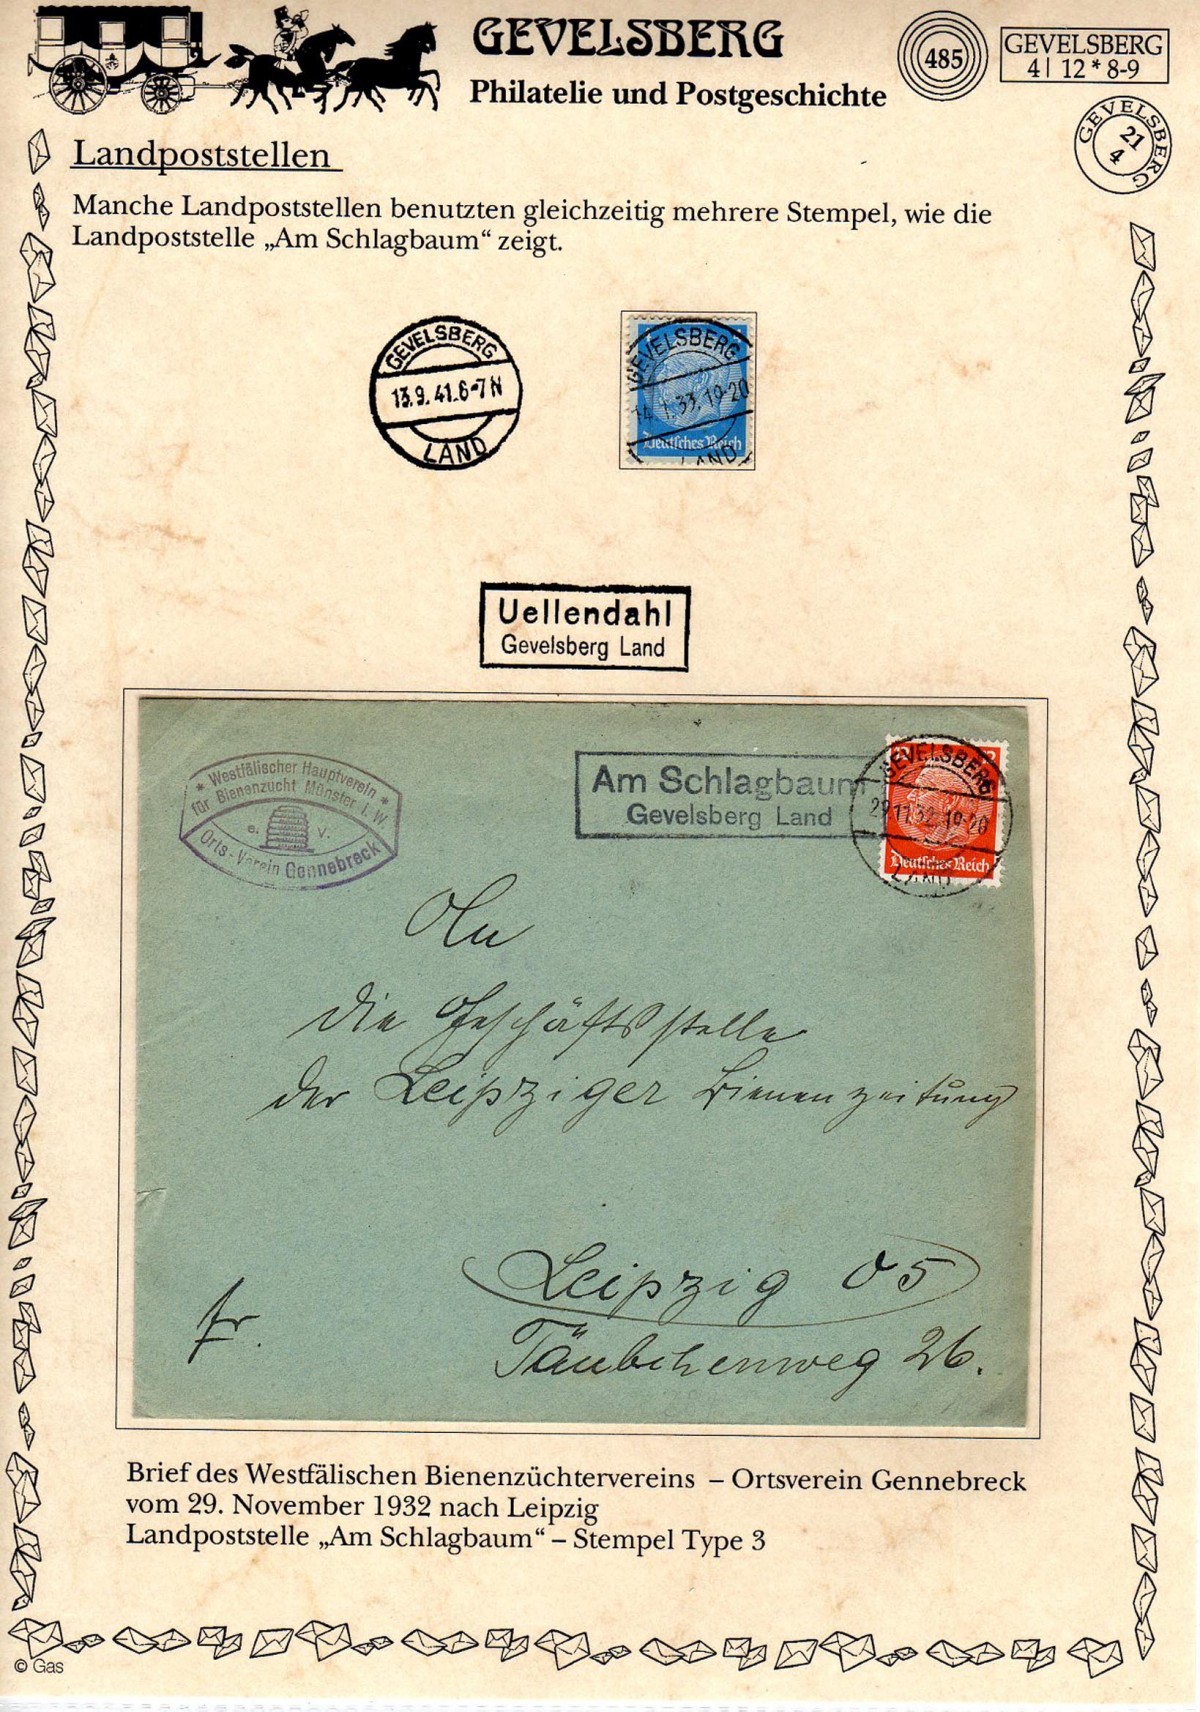 GEVELSBERG
Philatelie und Postgeschichte
485
GEVELSBERG
4| 12 * 8-9
GEVELSBERG
21
4
Landpoststellen
Manche Landpoststellen benutzten gleichzeitig mehrere Stempel, wie die
Landpoststelle „Am Schlagbaum“ zeigt.
GEVELSBERG
13.9.41.6-7N
LAND
GEVELSBERG
14.1.33.19-20
Deutsches Reich
LAND
Uellendahl
Gevelsberg Land
* Westfälischer Hauptverein *
für Bienenzucht Münster i. W.
e. V.
Orts-Verein Gennebreck
Am Schlagbaum
Gevelsberg Land
GEVELSBERG
29.11.32.19-20
Deutsches Reich
LAND
An
die Geschäftsstelle
der Leipziger Bienenzeitung
Leipzig O5
fr.
Täubchenweg 26.
Brief des Westfälischen Bienenzüchtervereins – Ortsverein Gennebreck
vom 29. November 1932 nach Leipzig
Landpoststelle „Am Schlagbaum“ – Stempel Type 3
© Gas